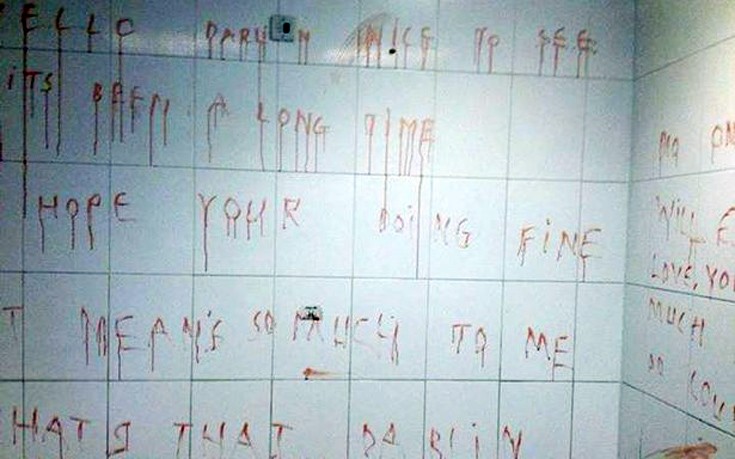 ELLO DARLIN NICE TO SEE
iTS BEEN A LONG TIME
HOPE YOUR DOiNG FiNE
T MEAN'S SO MUCH TO ME
HATS THAT DARLiN
NO ON
WILL E
LOVE, YO
MUCH